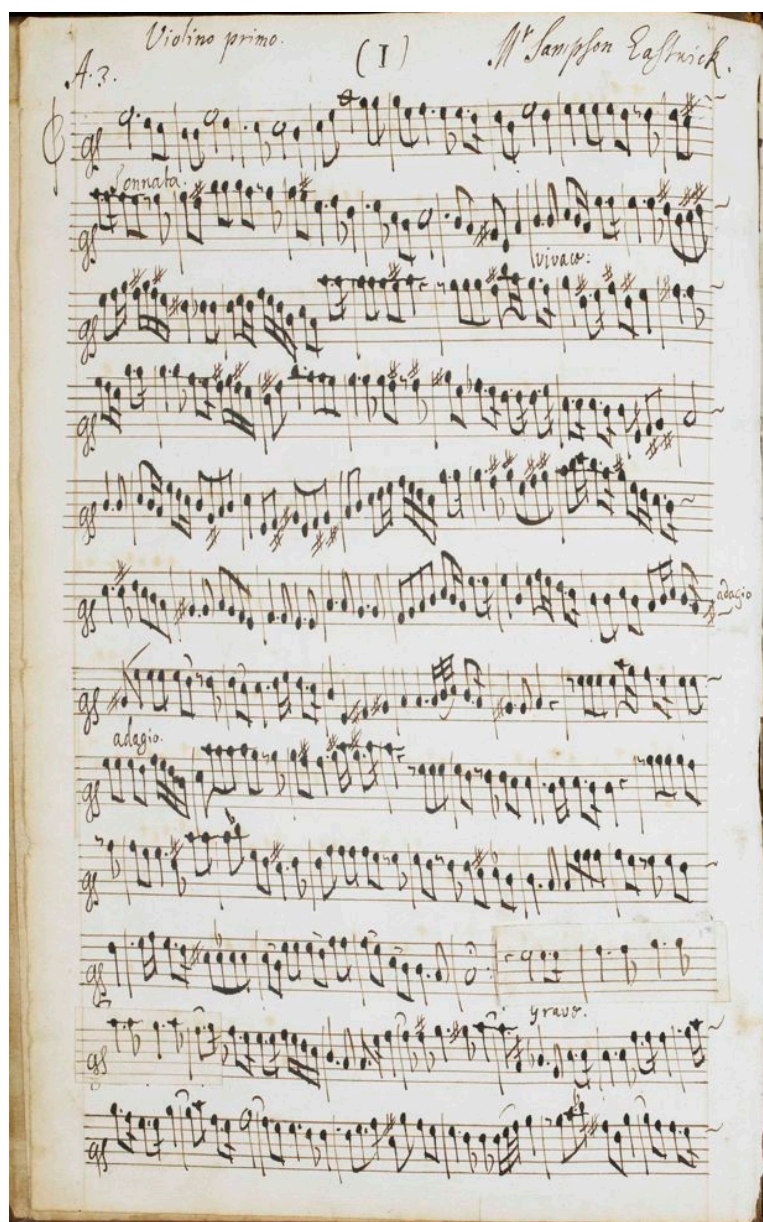 Violino primo. (I) Mr Sampson Eastwick.
A. 3.
Sonnata.
vivace:
adagio
adagio.
grave.